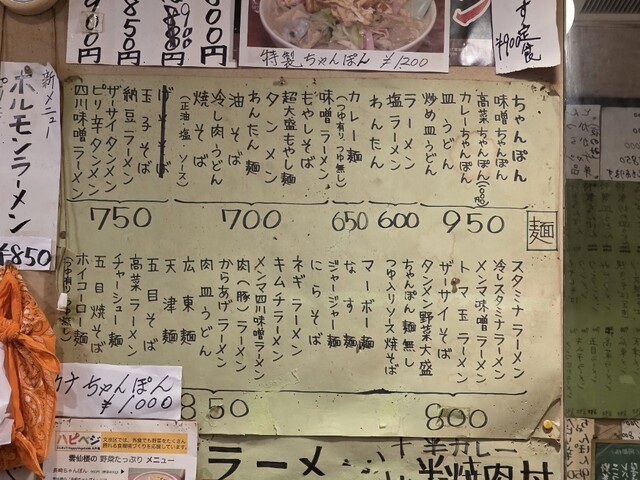 特製ちゃんぽん ¥1200
す定食
¥900
850
新メニュー
ホルモンラーメン
¥850
麺
ちゃんぽん
味噌ちゃんぽん
高菜ちゃんぽん
カレーちゃんぽん
皿うどん
炒め皿うどん
950
ラーメン
塩ラーメン
わんたん
600
カレー麺
(つゆ有り、つゆ無し)
650
味噌ラーメン
もやしそば
超大盛もやし麺
タンメン
わんたん麺
油そば
冷し肉うどん
焼そば
(正油・塩・ソース)
700
玉子そば
納豆ラーメン
ザーサイタンメン
ピリ辛タンメン
四川味噌ラーメン
750
スタミナラーメン
冷しスタミナラーメン
メンマ味噌ラーメン
トマ玉ラーメン
ザーサイそば
タンメン野菜大盛
ちゃんぽん麺無し
つゆ入りソース焼そば
800
マーボー麺
なす麺
ジャージャー麺
にらそば
ネギラーメン
キムチラーメン
メンマ四川味噌ラーメン
肉(豚)ラーメン
からあげラーメン
肉皿うどん
広東麺
天津麺
五目そば
高菜ラーメン
チャーシュー麺
五目焼そば
ホイコーロー麺
850
ちゃんぽん
¥1,000
ハピベジ
文京区では、外食でも野菜をたくさん
摂れる食環境づくりを応援しています。
雲仙楼の 野菜たっぷり メニュー
長崎ちゃんぽん
ラーメン
半カレー
半焼肉丼